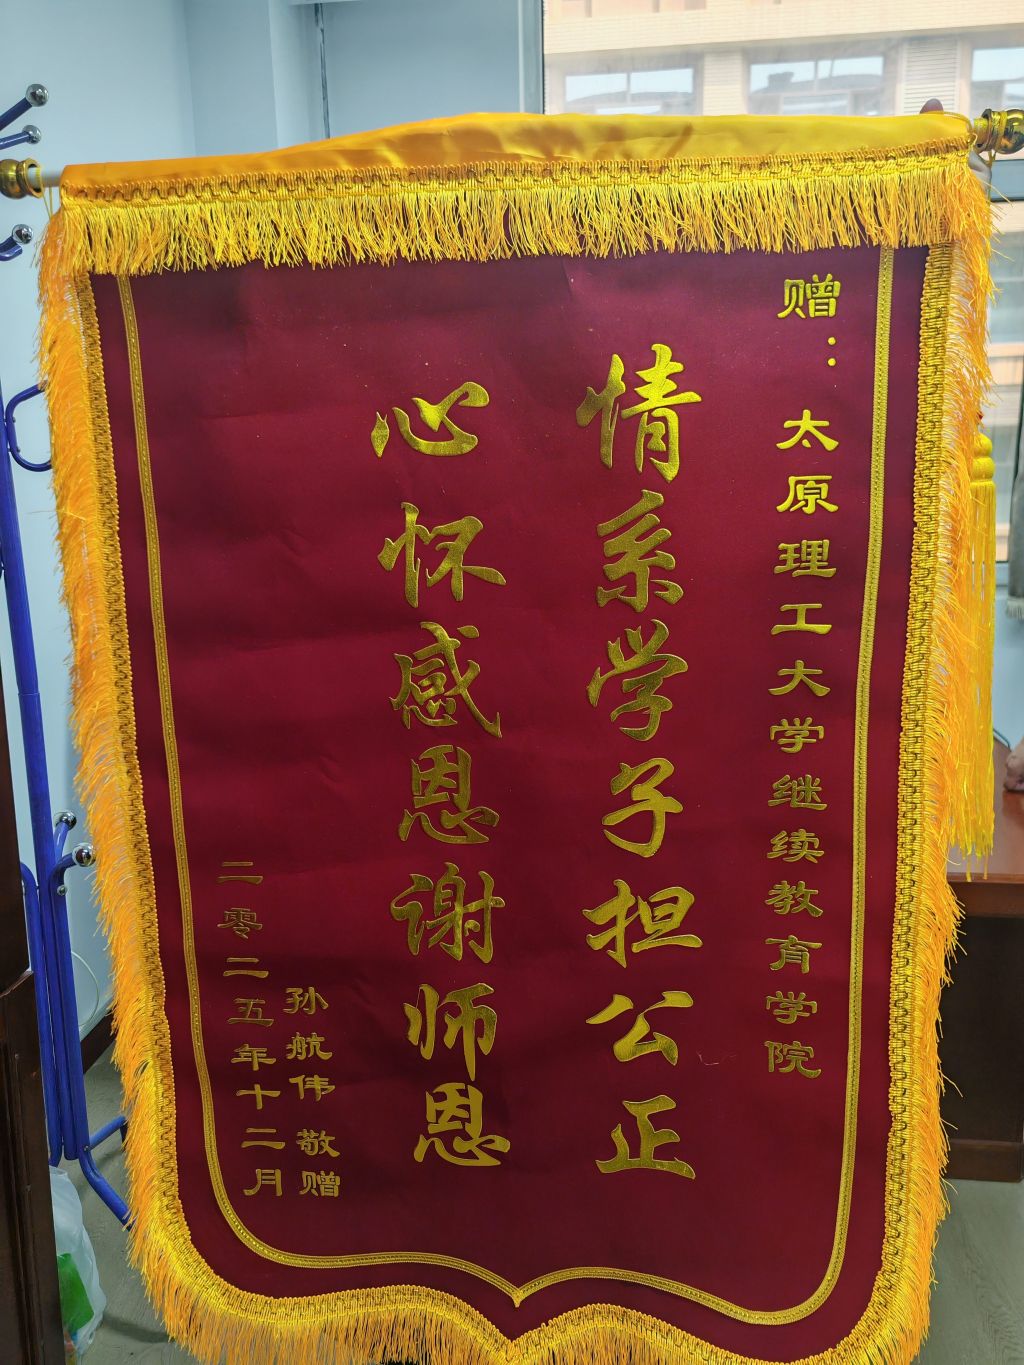 赠：太原理工大学继续教育学院
情系学子担公正
心怀感恩谢师恩
孙航伟 敬赠
二零二五年十二月